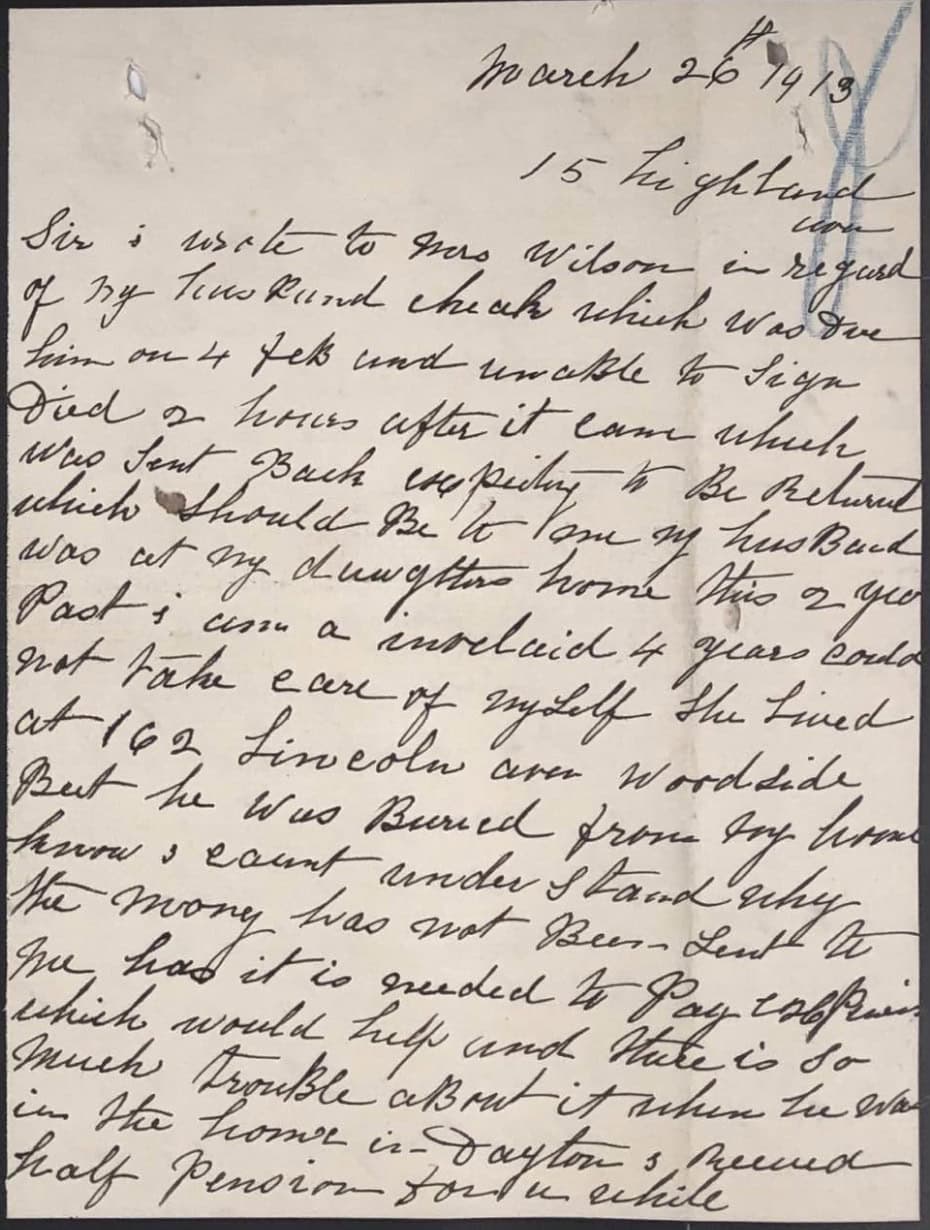 March 26th 1913
15 highland
aven
Sir i wrote to Mrs Wilson in regard
of my husBand cheak which was Due
him on 4 feB and unaBle to Sign
Died 2 hours after it came which
was Sent Back expecting to Be Returned
which Should Be to me my husBand
was at my daughters home this 2 yea
Past i am a invelaid 4 years could
not take care of myself She Lived
at 162 Lincoln aven Woodside
But he was Buried from my home
know i caunt under Stand why
the mony has not Been Sent to
me has it is needed to Pay
which would help and there is So
much trouBle aBout it when he was
in the home in Dayton i Receved
half Pension for a while